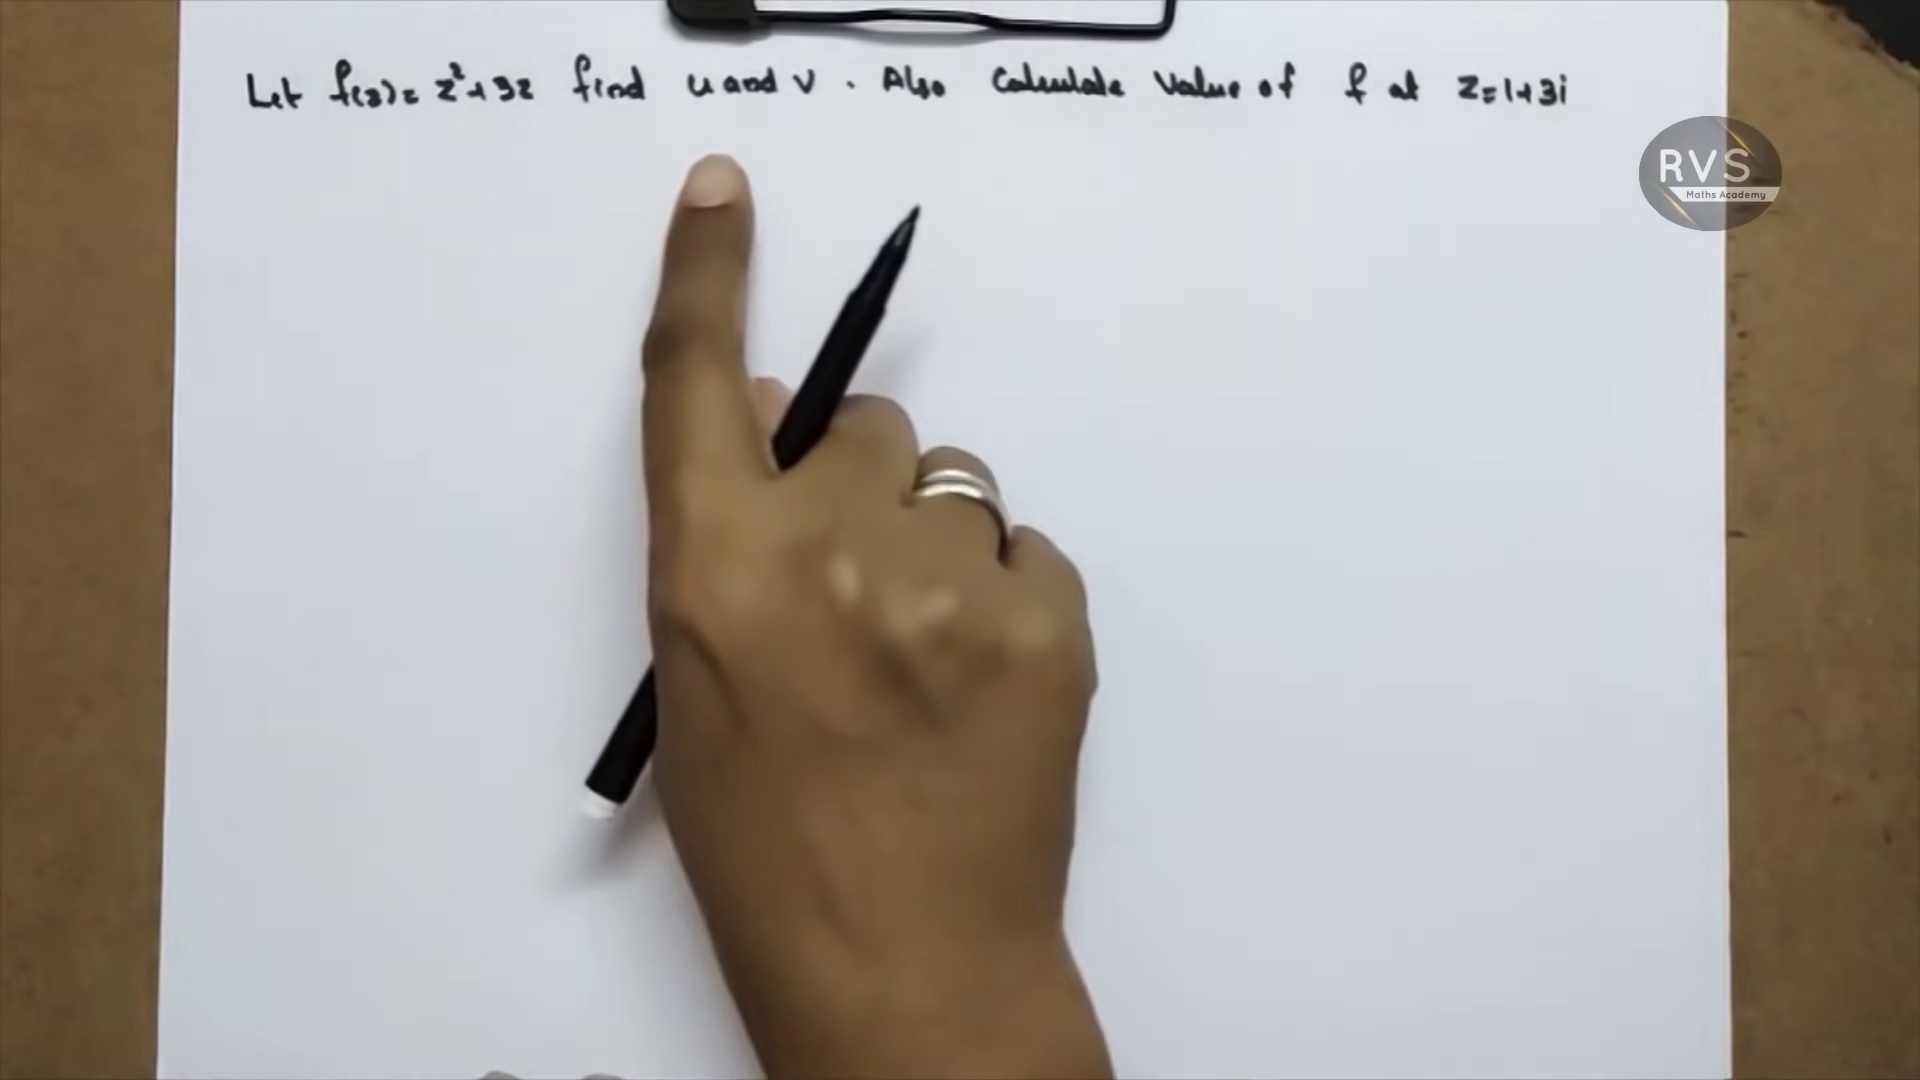 Let f(z)= z²+3z find u and v. Also Calculate Value of f at z=1+3i
RVS
Maths Academy